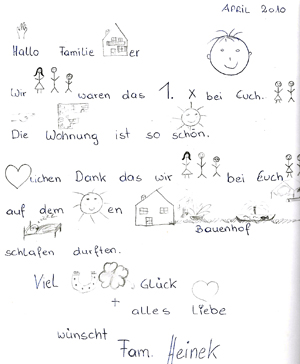 APRIL 2010
Hallo Familie er
Wir waren das 1. x bei Euch.
Die Wohnung ist so schön.
lichen Dank das wir bei Euch
auf dem en
Bauenhof
schlafen durften.
Viel Glück
+ alles Liebe
wünscht
Fam. Heinek